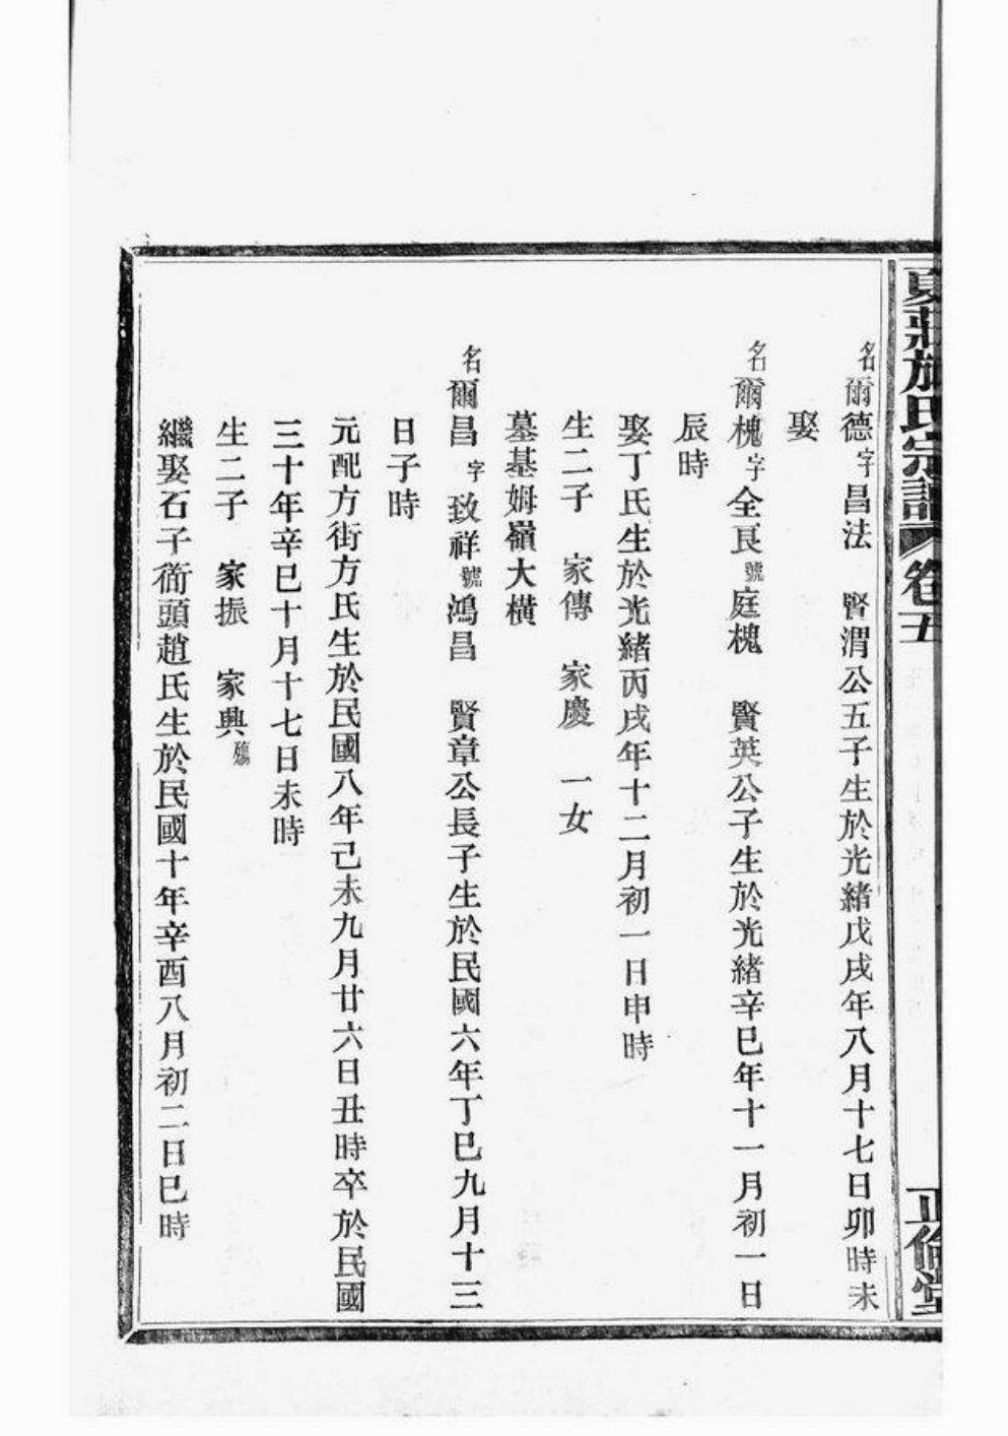 東莊施氏宗譜 卷五 正倫堂
名爾德字昌法 賢渭公五子生於光緒戊戌年八月十七日卯時未
娶
名爾槐字全良號庭槐 賢英公子生於光緒辛巳年十一月初一日
辰時
娶丁氏生於光緒丙戌年十二月初一日申時
生二子 家傳 家慶 一女
墓基姆嶺大橫
名爾昌字致祥號鴻昌 賢章公長子生於民國六年丁巳九月十三
日子時
元配方街方氏生於民國八年己未九月廿六日丑時卒於民國
三十年辛巳十月十七日未時
生二子 家振 家興殤
繼娶石子衕頭趙氏生於民國十年辛酉八月初二日巳時